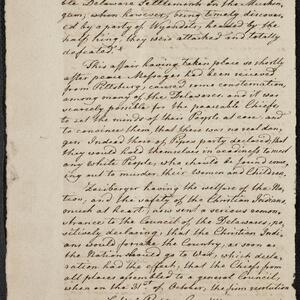 the Delaware Settlements on the Muskin-
gum, when however, being timely discover-
ed by a party of Wyandots, headed by the
half King, they were attacked and totally
defeated.
This affair having taken place so shortly
after peace Messages had been received
from Pittsburg, caused some consternation,
among many of the Delawares, and it was
scarcely possible for the peaceable Chiefs
to set the minds of their People at ease, and
to convince them, that there was no real dan-
ger. Indeed those of Pipes party declared, that
they would hold themselves in readiness to meet
any White People, who should be found com-
ing out to murder, their Women and Children.
Zeisberger having the welfare of the Na-
tion, and the safety of the Christian Indians
much at heart, now sent a serious remon-
strance to the Council of the Delawares, po-
sitively declaring, that the Christian Indi-
ans would forsake the Country, as soon as
the Nation should go to War, which decla-
ration had the effect, that the Chiefs from
all places assembled to a general Council,
when on the 31st of October, the firm resolution